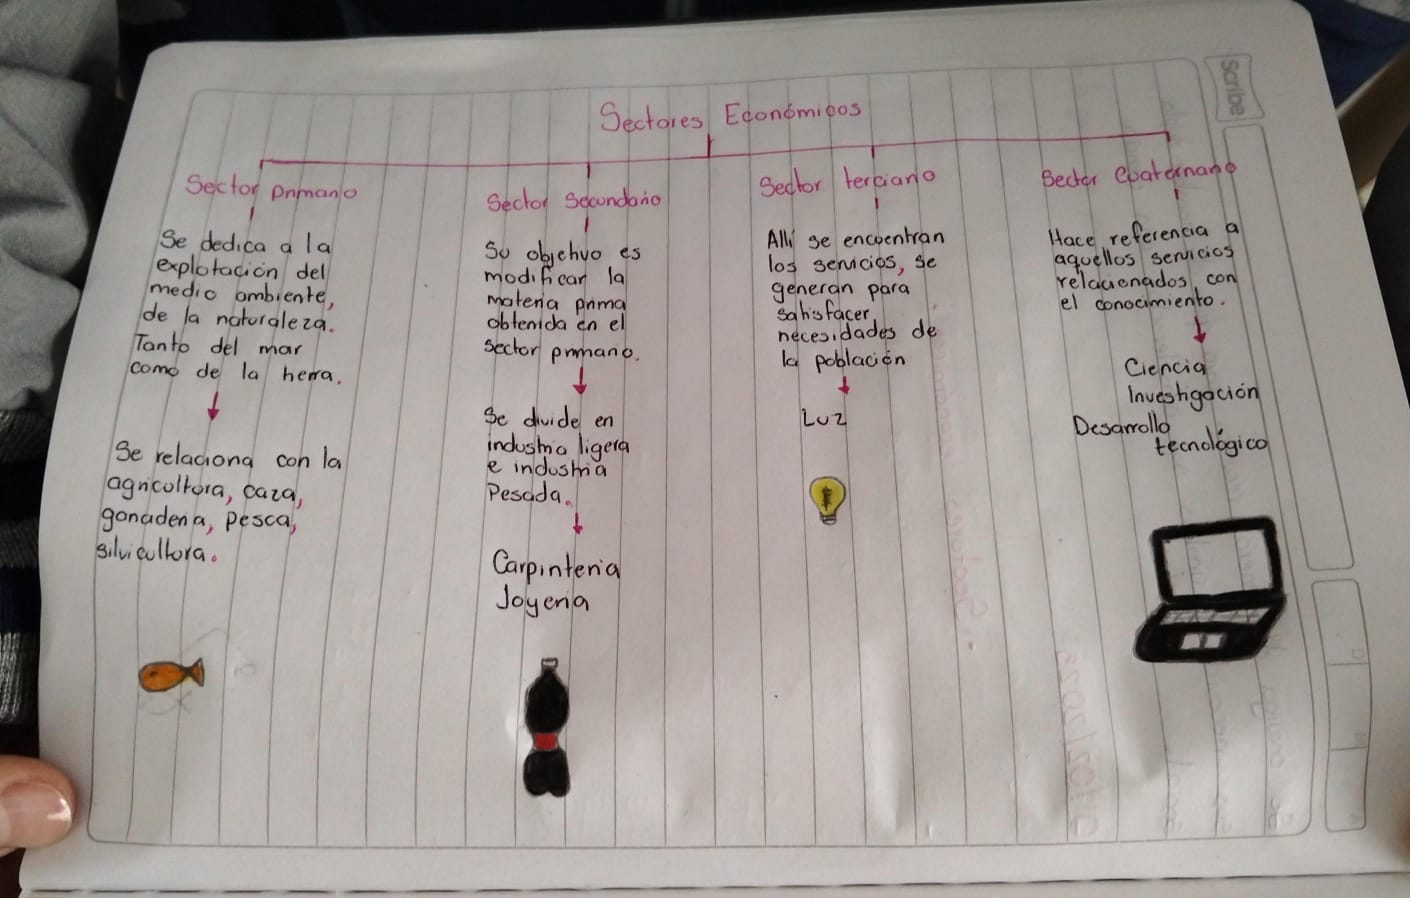 Sectores Económicos
Sector primario
Se dedica a la
explotación del
medio ambiente,
de la naturaleza.
Tanto del mar
como de la tierra.
Se relaciona con la
agricultura, caza,
ganadería, pesca,
silvicultura.
Sector Secundario
Su objetivo es
modificar la
materia prima
obtenida en el
sector primario.
Se divide en
industria ligera
e industria
Pesada.
Carpintería
Joyería
Sector terciario
Allí se encuentran
los servicios, se
generan para
satisfacer
necesidades de
la población
Luz
Sector Cuaternario
Hace referencia a
aquellos servicios
relacionados con
el conocimiento.
Ciencia
Investigación
Desarrollo
tecnológico
Scribe